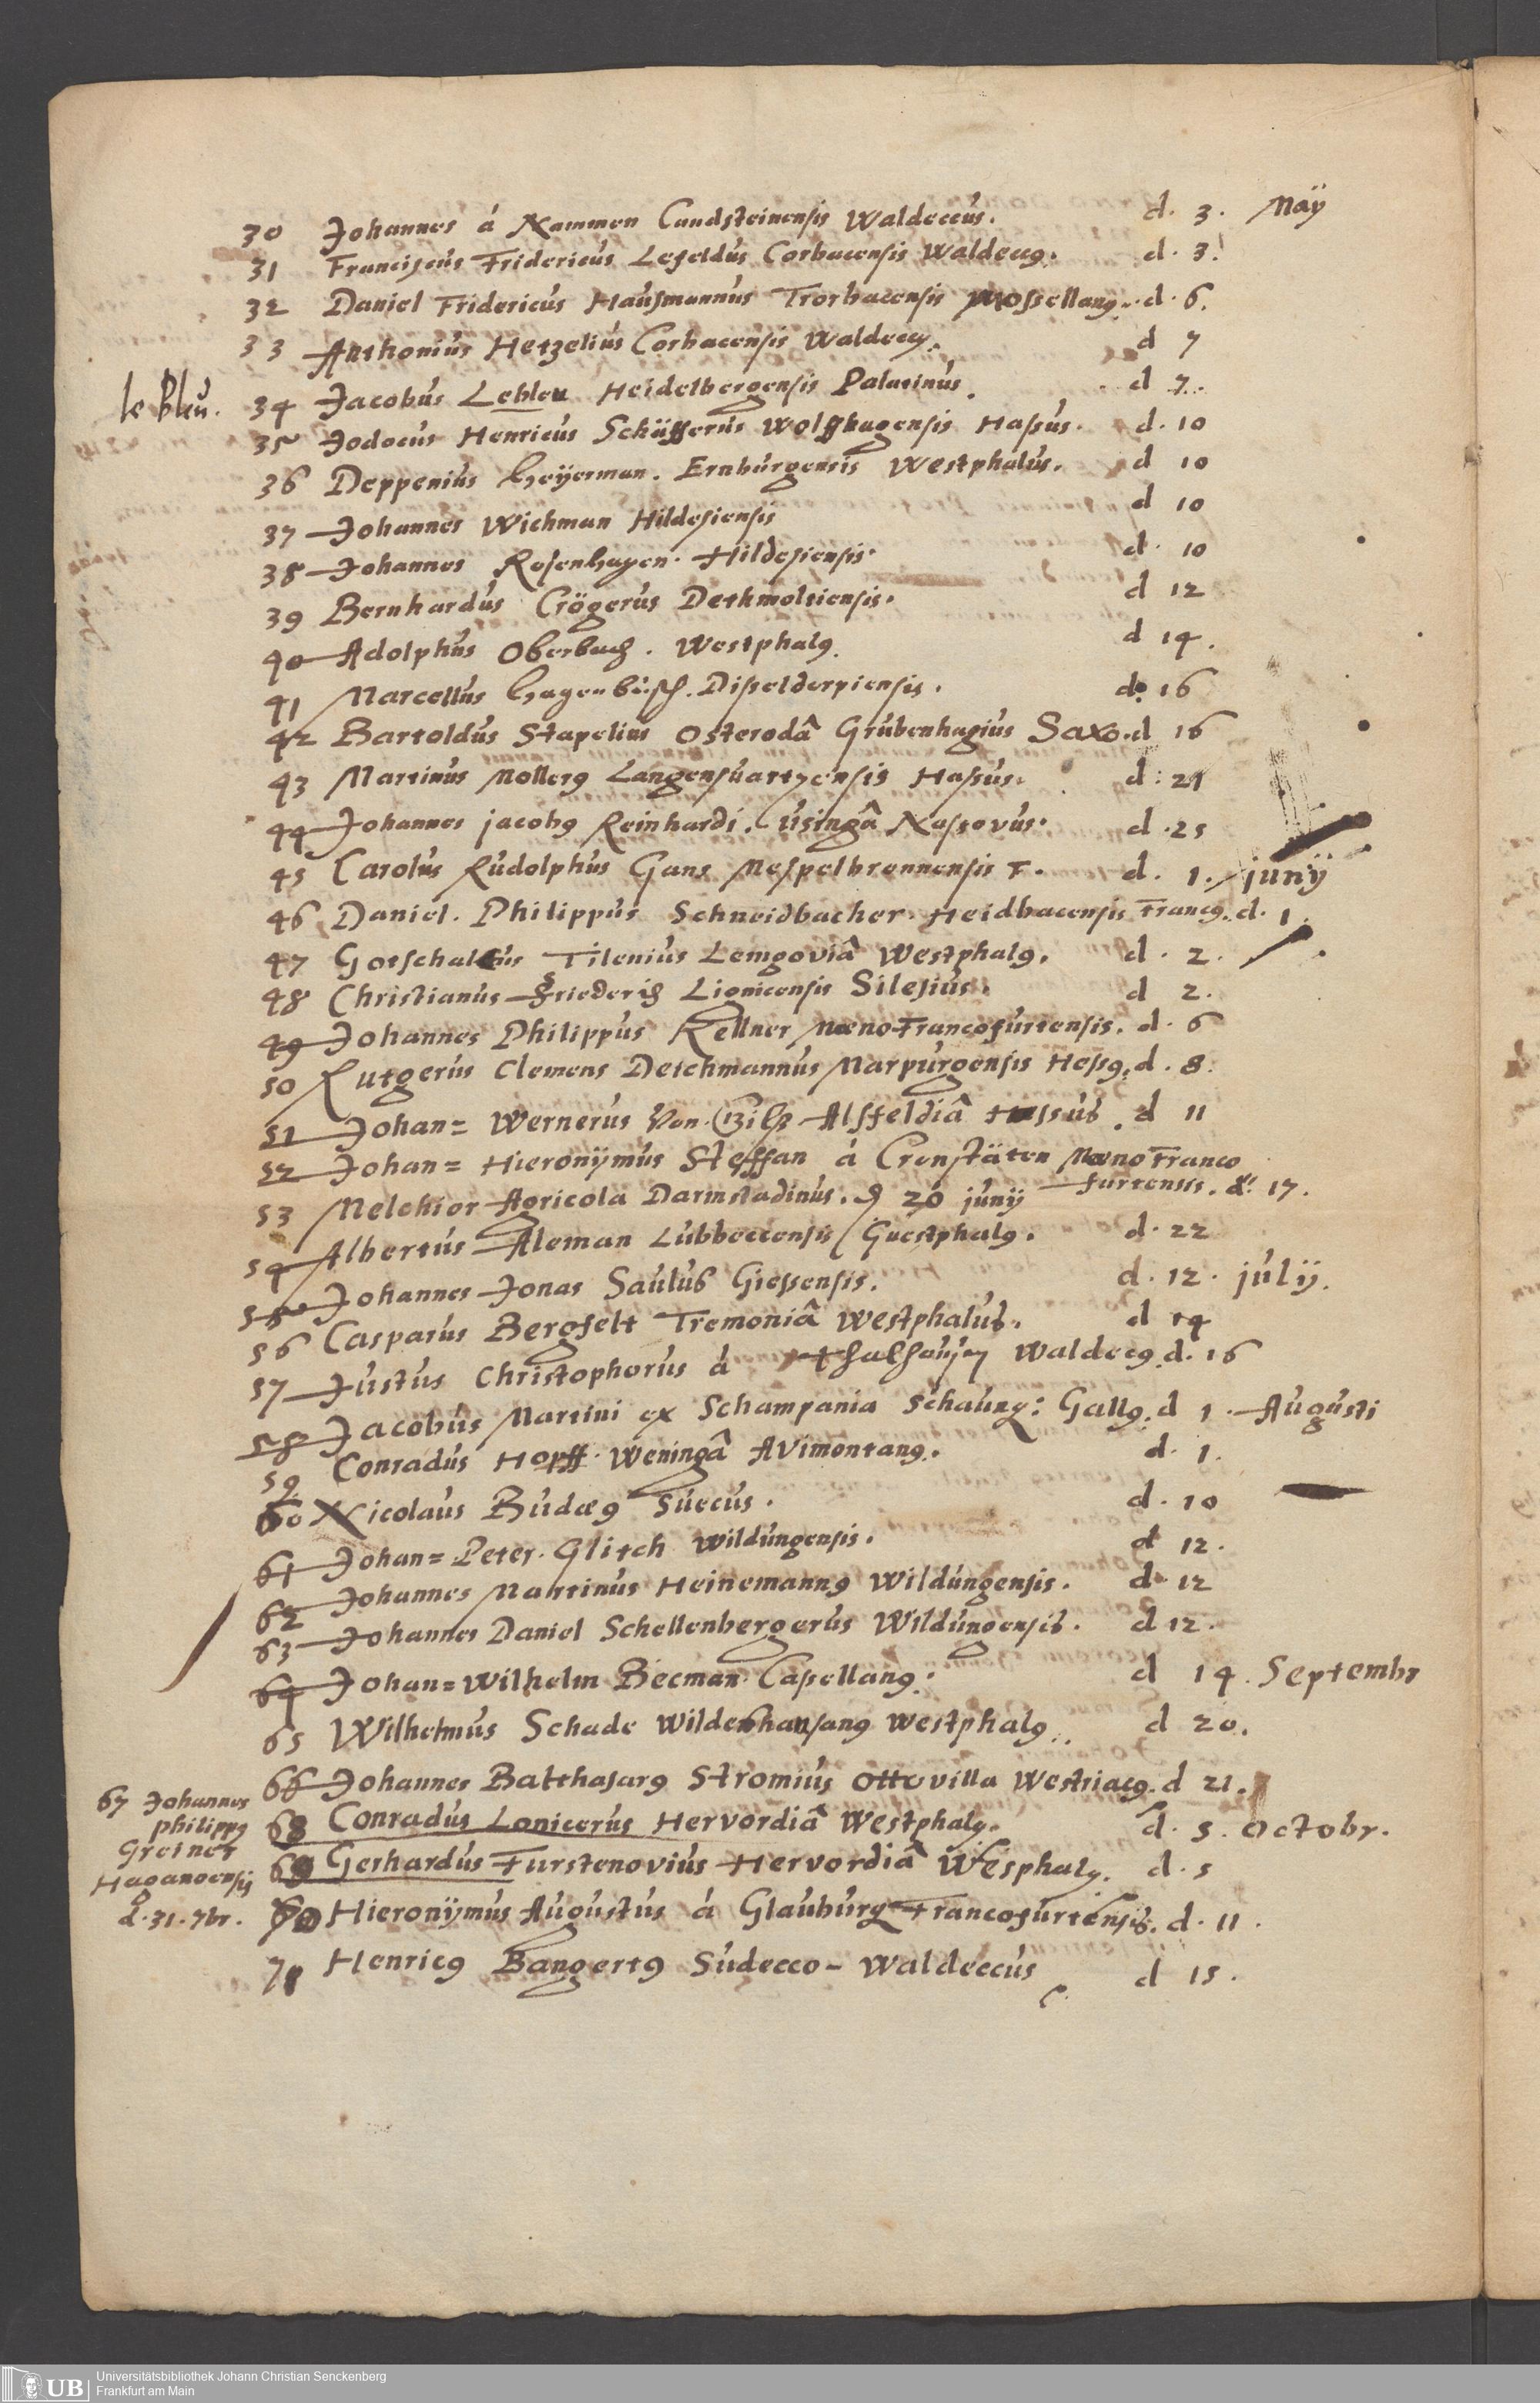 30 Johannes á Nammen Candsteinensis Waldeccus. d. 3. Maÿ
31 Franciscus Fridericus Lefeldus Corbacensis Waldecc9. d. 3.
32 Daniel Fridericus Hausmannus Trorbacensis Mossellan9. d. 6.
33 Anthonius Hetzelius Corbacensis Waldecc9. d 7
le Bleu. 34 Jacobus Lebleu Heidelbergensis Palatinus. d 7.
35 Jodocus Henricus Schäfferus Wolffhagensis Hassus. d. 10
36 Deppenius Heÿerman. Ernburgensis Westphalus. d 10
37 Johannes Wichman Hildesiensis d 10
38 Johannes Rosenhagen. Hildesiensis. d. 10
39 Bernhardus Crögerus Dethmoltiensis. d 12
40 Adolphus Oberbach. Westphal9. d 14.
41 Marcellus Hagenbusch. Disselderpiensis. d. 16
42 Bartoldus Stapelius Osterodâ Grubenhagius Saxo. d 16
43 Martinus Moller9 Langensuartzensis Hassus. d. 21
44 Johannes jacob9 Reinhardi. Usingâ Nassovus. d. 25
45 Carolus Rudolphus Gans Mespelbrennensis F. d. 1. junÿ
46 Daniel. Philippus Schneidbacher. Heidbacensis Franc9. d. 1.
47 Gotschalcus Tilenius Lemgoviâ Westphal9. d. 2.
48 Christianus Friederich Lignicensis Silesius. d 2.
49 Johannes Philippus Kellner Mœno-Francofurtensis. d. 6
50 Rutgerus Clemens Deichmannus Marpurgensis Hess9. d. 8.
51 Johan= Wernerus Von Zilß Alsfeldiâ Hassus. d 11
52 Johan= Hieronÿmus Steffan á Cronstäten Mœno Franco
furtensis. d. 17.
53 Melchior Agricola Darmstadinus. d 20 junÿ
54 Albertus Aleman Lubbeccensis Guestphal9. d. 22
55 Johannes Jonas Saulus Giessensis. d. 12. julÿ.
56 Casparus Bergfelt Tremoniâ Westphalus. d 14
57 Justus Christophorus á Thalhausen Waldecc9. d. 16
58 Jacobus Martini ex Schampania Schaunz: Gall9. d 1. Augusti
59 Conradus Hopff. Weningâ Avimontan9. d. 1.
60 Nicolaus Budæ9 Suecus. d. 10
61 Johan= Peter. Glitch Wildungensis. d 12.
62 Johannes Martinus Heinemann9 Wildungensis. d 12
63 Johannes Daniel Schellenbergerus Wildungensis. d 12.
64 Johan= Wilhelm Becman. Casellan9. d 14. Septembr
65 Wilhelmus Schade Wildeshausan9 Westphal9. d 20.
66 Johannes Balthasar9 Stromius Ottovilla Westriac9. d 21.
67 Johannes
Philipp9
Greiner
Haganoensis
d. 31. 7br.
68 Conradus Lonicerus Hervordiâ Westphal9. d. 5. Octobr.
69 Gerhardus Furstenovius Hervordiâ Wesphal9. d. 5
70 Hieronÿmus Augustus á Glauburg Francofurtensis. d. 11.
71 Henric9 Bangert9 Sudecco-Waldeccus d 15.
UB Universitätsbibliothek Johann Christian Senckenberg
Frankfurt am Main